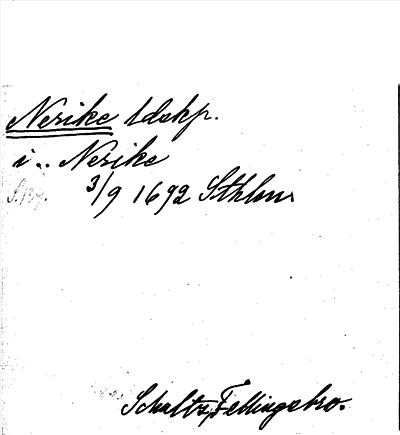 Nerike ldskp.
i .. Nerike
S. 139. 3/9 1692 Sthlm
Schultz, Fellingsbro.